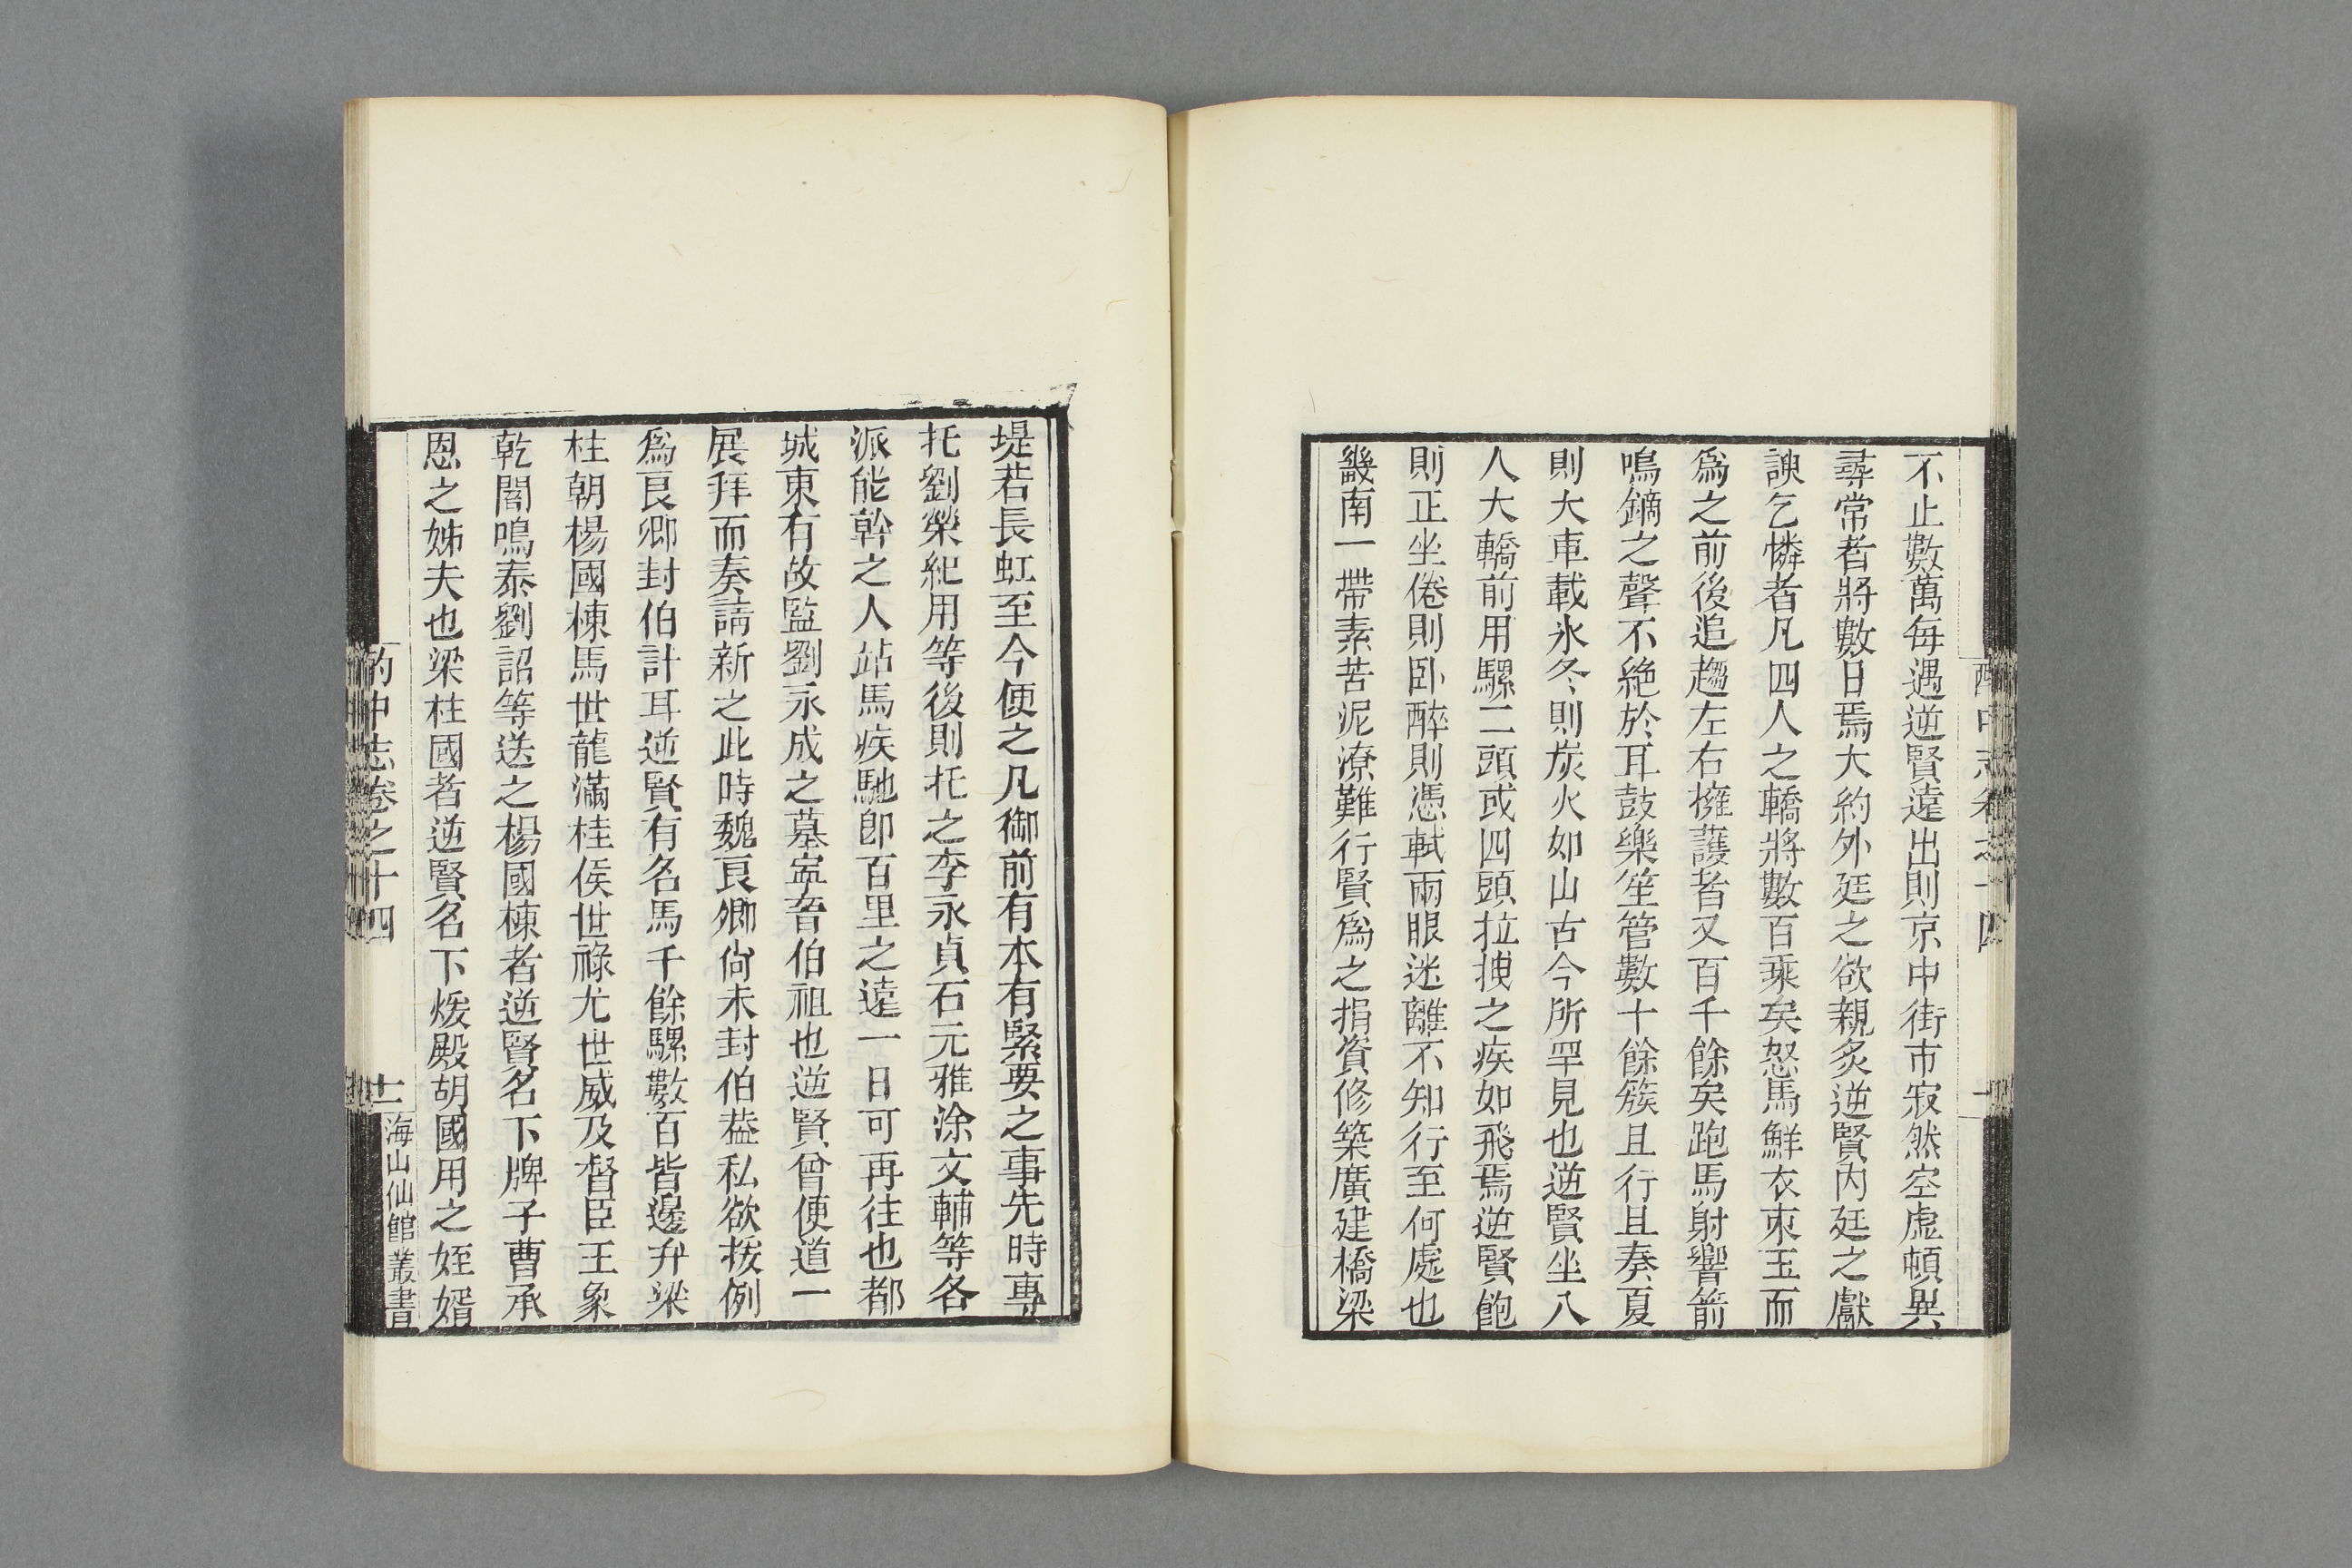 不止數萬每遇逆賢遠出則京中街市寂然空虛頓異
尋常者將數日焉大約外廷之欲親炙逆賢內廷之獻
諛乞憐者凡四人之轎將數百乘矣怒馬鮮衣束玉而
爲之前後追趨左右擁護者又百千餘矣跑馬射響箭
鳴鏑之聲不絶於耳鼓樂笙管數十餘簇且行且奏夏
則大車載氷冬則炭火如山古今所罕見也逆賢坐八
人大轎前用騾二頭或四頭拉拽之疾如飛焉逆賢飽
則正坐倦則卧醉則憑軾兩眼迷離不知行至何處也
畿南一帶素苦泥潦難行賢爲之捐資修築廣建橋梁
堤若長虹至今便之凡御前有本有緊要之事先時專
托劉榮紀用等後則托之李永貞石元雅涂文輔等各
派能幹之人跕馬疾馳卽百里之遠一日可再往也都
城東有故監劉永成之墓寍晉伯祖也逆賢曾便道一
展拜而奏請新之此時魏良卿尙未封伯葢私欲援例
爲良卿封伯計耳逆賢有名馬千餘騾數百皆邊弁梁
柱朝楊國棟馬世龍滿桂侯世祿尤世威及督臣王象
乾閻鳴泰劉詔等送之楊國棟者逆賢名下牌子曹承
恩之姊夫也梁柱國者逆賢名下煖殿胡國用之姪婿
酌中志卷之十四
十一
海山仙館叢書